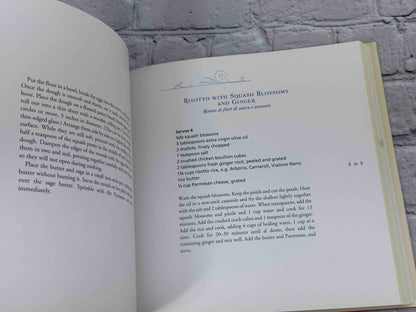 Put the flour in a bowl, break the eggs into the
Once the dough is smooth and
hour. Place the dough on a floured
roll out into thin sheets with a
circles or more, 3 inches in diameter
thin-edged glass.) Arrange them side by side on
surface. While they are still soft, put
dough. Dampen the edges of the rounds
them in two and seal, pressing together
they will not open during cooking.
Place the butter and sage in a small
butter without burning it. Serve the ravioli
over the sage butter. Sprinkle with the Parmesan
immediately.
Risotto with Squash Blossoms
and Ginger
Risotto di fiori di zucca e zenzero
Serves 4
squash blossoms
3 tablespoons extra virgin olive oil
2 shallots, finely chopped
1 teaspoon salt
2 crushed chicken bouillon cubes
2 tablespoons fresh ginger root, peeled and grated
1¾ cups risotto rice, e.g. Arborio, Carnaroli, Vialone Nano
butter
½ cup Parmesan cheese, grated
Wash the squash blossoms. Keep the pistils and cut the petals. Heat
the oil in a non-stick casserole and fry the shallots lightly
with the salt and 2 tablespoons of water. When transparent, add the
squash blossoms and pistils and 1 cup water and cook for 15
minutes. Add the crushed stock cubes and 1 teaspoon of the ginger.
Add the rice and cook, adding 4 cups of boiling water, 1 cup at a
time. Cook for 20–30 minutes until al dente, then add the
remaining ginger and mix well. Add the butter and Parmesan, and
serve.